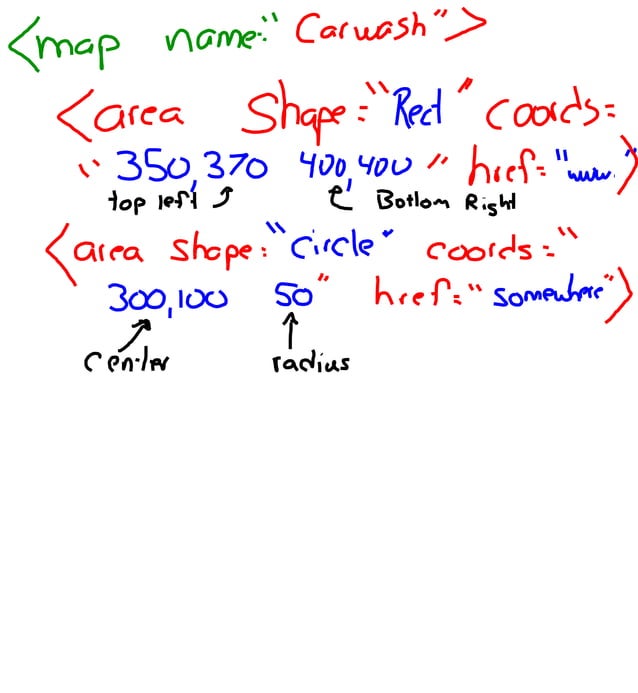 <map name="Carwash">
<area Shape="Rect" coords=
"350,370 400,400" href="www.">
top left Bottom Right
<area shape="circle" coords="
300,100 50" href="somewhere">
center radius